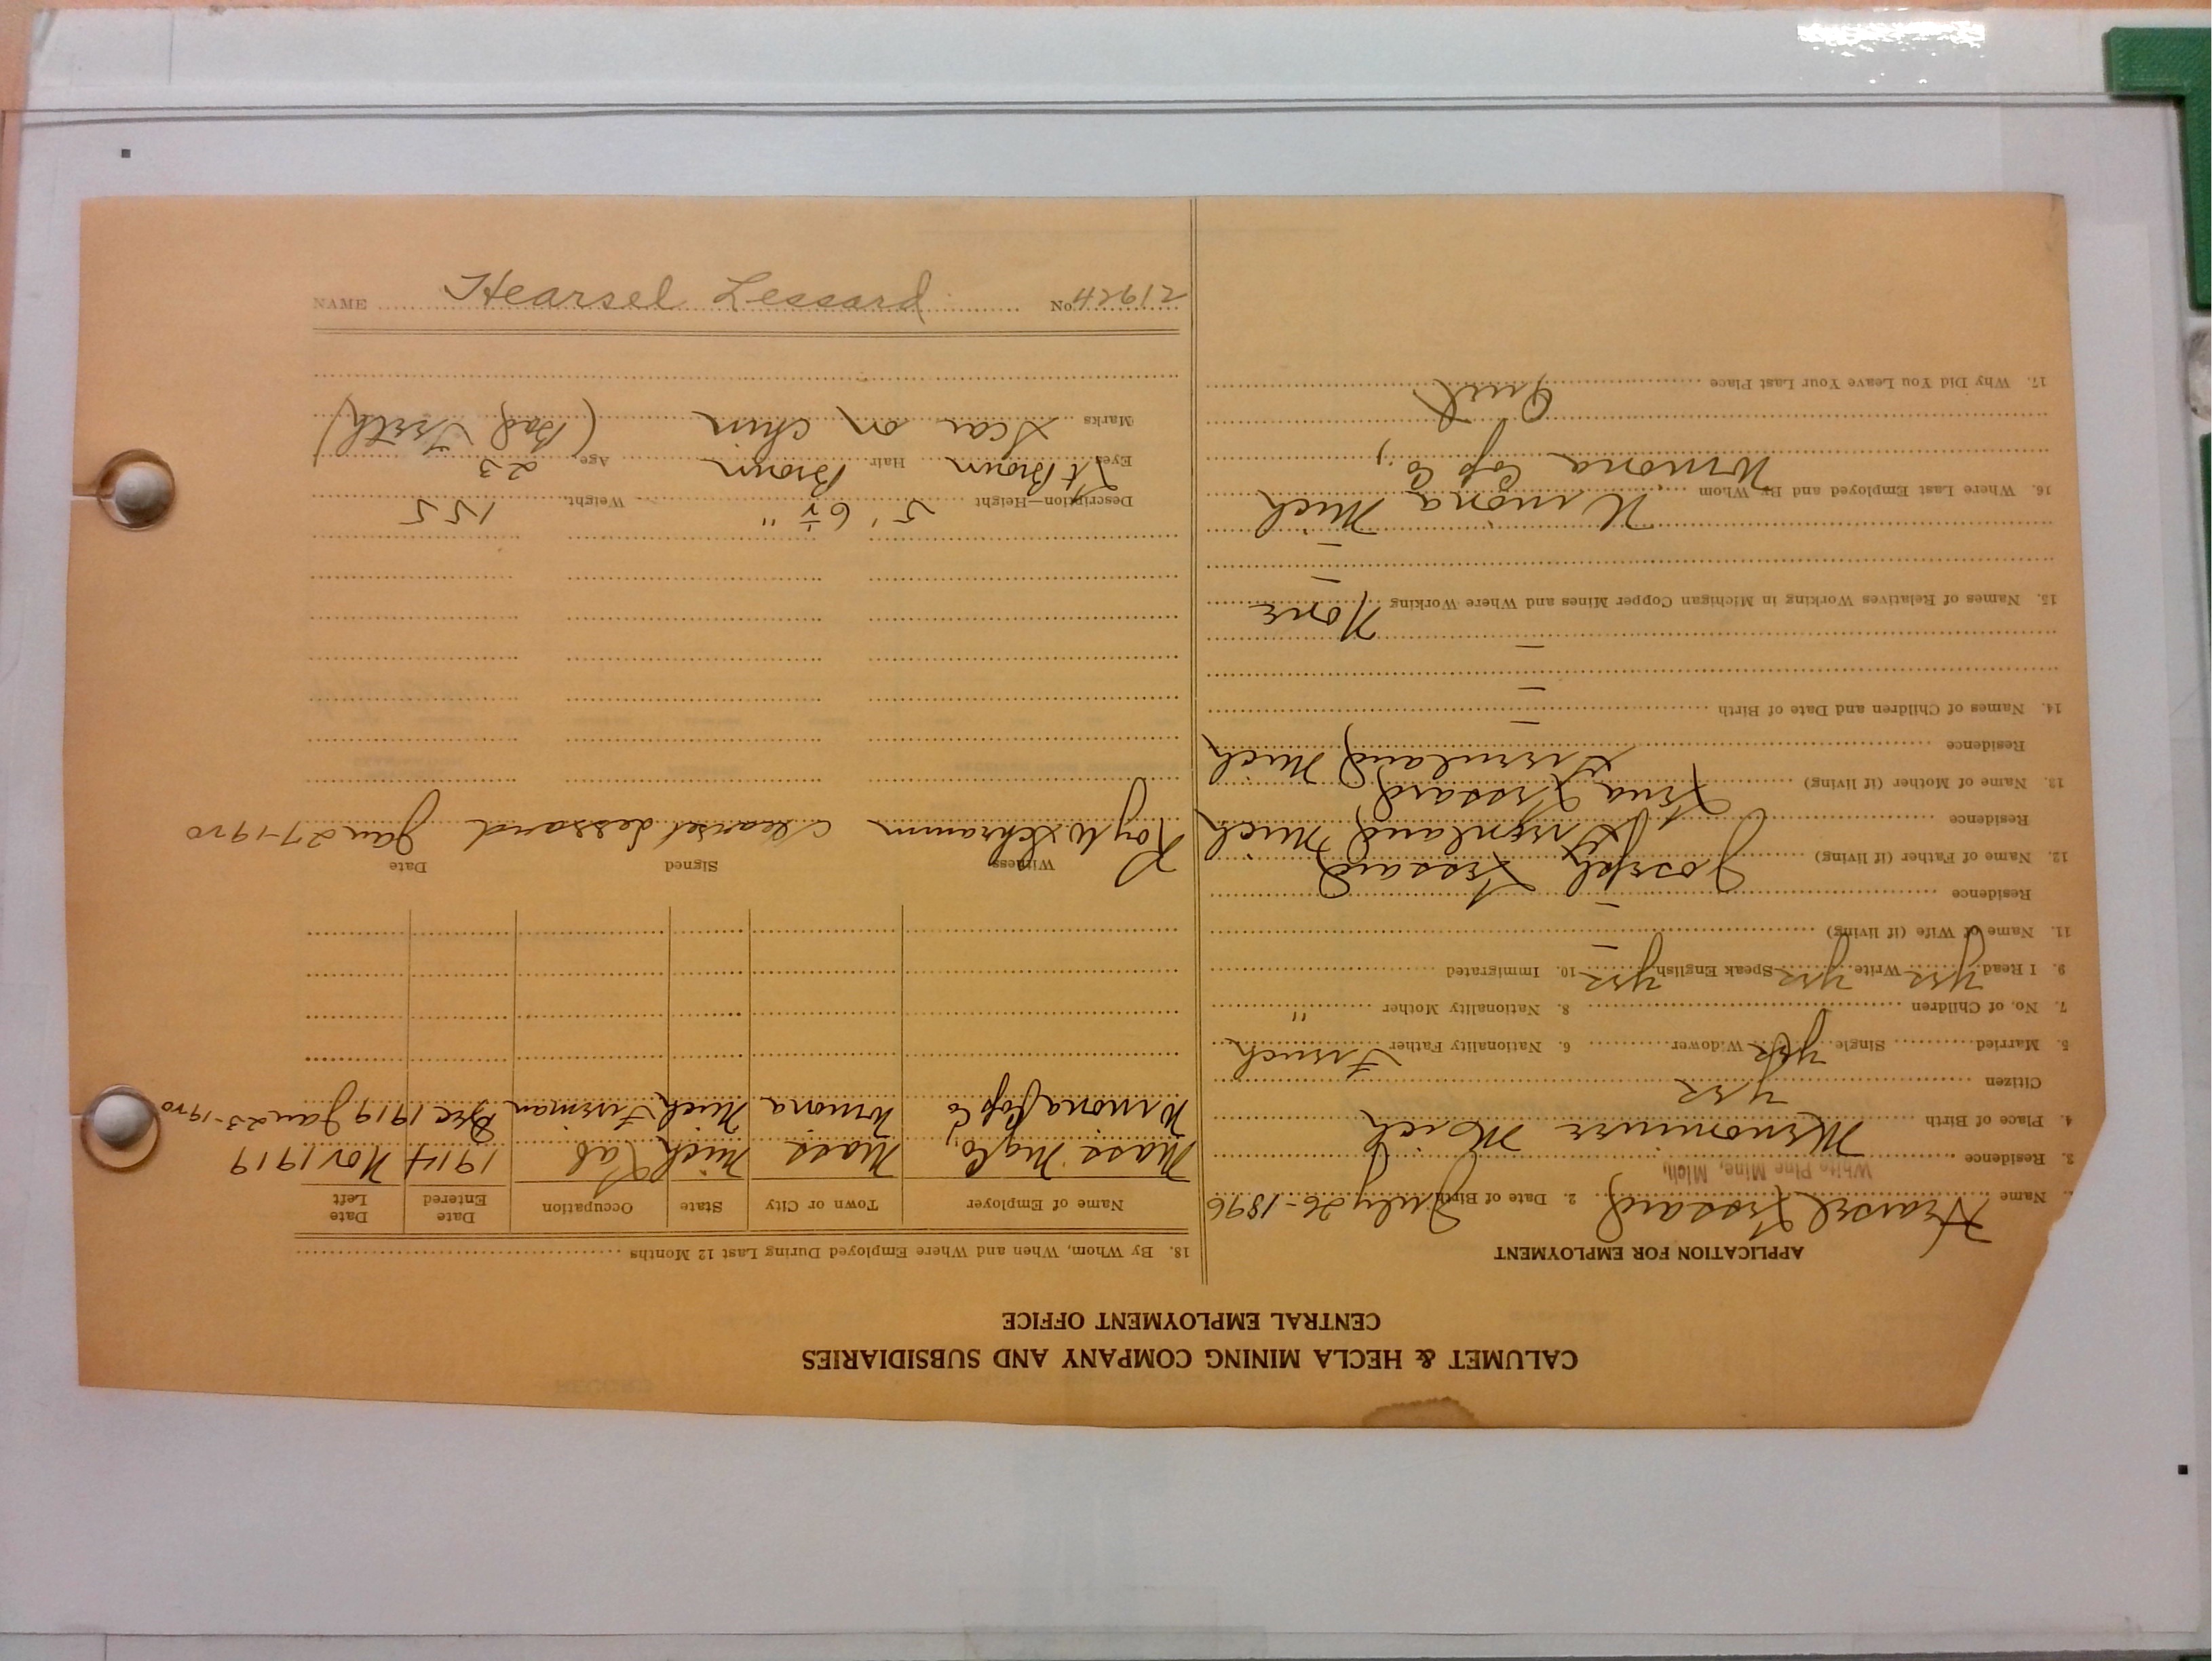 CALUMET & HECLA MINING COMPANY AND SUBSIDIARIES
CENTRAL EMPLOYMENT OFFICE
APPLICATION FOR EMPLOYMENT
Name Hearsel Lessard 2. Date of Birth July 26-1896
3. Residence White Pine Mine, Mich.
4. Place of Birth Menominee Mich
Citizen yes
5. Married Single yes Widower 6. Nationality Father French
7. No. of Children 8. Nationality Mother "
9. I Read yes Write yes Speak English yes 10. Immigrated
11. Name of Wife (if living) –
Residence –
12. Name of Father (if living) Joseph Lessard
Residence Greenland Mich
13. Name of Mother (if living) Lena Lessard
Residence Greenland Mich
14. Names of Children and Date of Birth –
–
–
15. Names of Relatives Working in Michigan Copper Mines and Where Working None
–
–
16. Where Last Employed and By Whom Winona Mich
Winona Cop Co.,
17. Why Did You Leave Your Last Place Quit
18. By Whom, When and Where Employed During Last 12 Months
Name of Employer Town or City State Occupation Date Entered Date Left
Mass Mg Co, Mass Mich Lab 1914 Nov 1919
Winona Cop Co Winona Mich Fireman Dec 1919 Jan 23-1920
Witness Signed Date
Roy W Schramm Hearsel Lessard Jan 27-1920
Description—Height 5' 6½" Weight 155
Eyes Lt Brown Hair Brown Age 23
Marks Scar on chin (Bad Teeth)
NAME Hearsel Lessard No. 42612